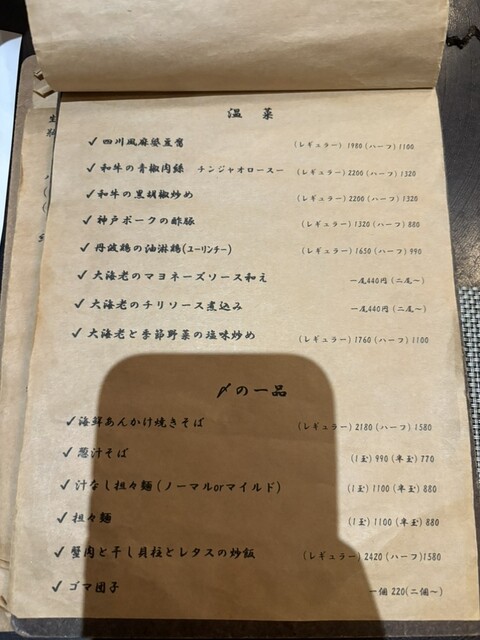 温菜
✓四川風麻婆豆腐 (レギュラー) 1980 (ハーフ) 1100
✓和牛の青椒肉絲 チンジャオロースー (レギュラー) 2200 (ハーフ) 1320
✓和牛の黒胡椒炒め (レギュラー) 2200 (ハーフ) 1320
✓神戸ポークの酢豚 (レギュラー) 1320 (ハーフ) 880
✓丹波鶏の油淋鶏(ユーリンチー) (レギュラー) 1650 (ハーフ) 990
✓大海老のマヨネーズソース和え 一尾440円 (二尾～)
✓大海老のチリソース煮込み 一尾440円 (二尾～)
✓大海老と季節野菜の塩味炒め (レギュラー) 1760 (ハーフ) 1100
〆の一品
✓海鮮あんかけ焼きそば (レギュラー) 2180 (ハーフ) 1580
✓葱汁そば (1玉) 990 (半玉) 770
✓汁なし担々麺 (ノーマルorマイルド) (1玉) 1100 (半玉) 880
✓担々麺 (1玉) 1100 (半玉) 880
✓蟹肉と干し貝柱とレタスの炒飯 (レギュラー) 2420 (ハーフ) 1580
✓ゴマ団子 一個 220(二個～)